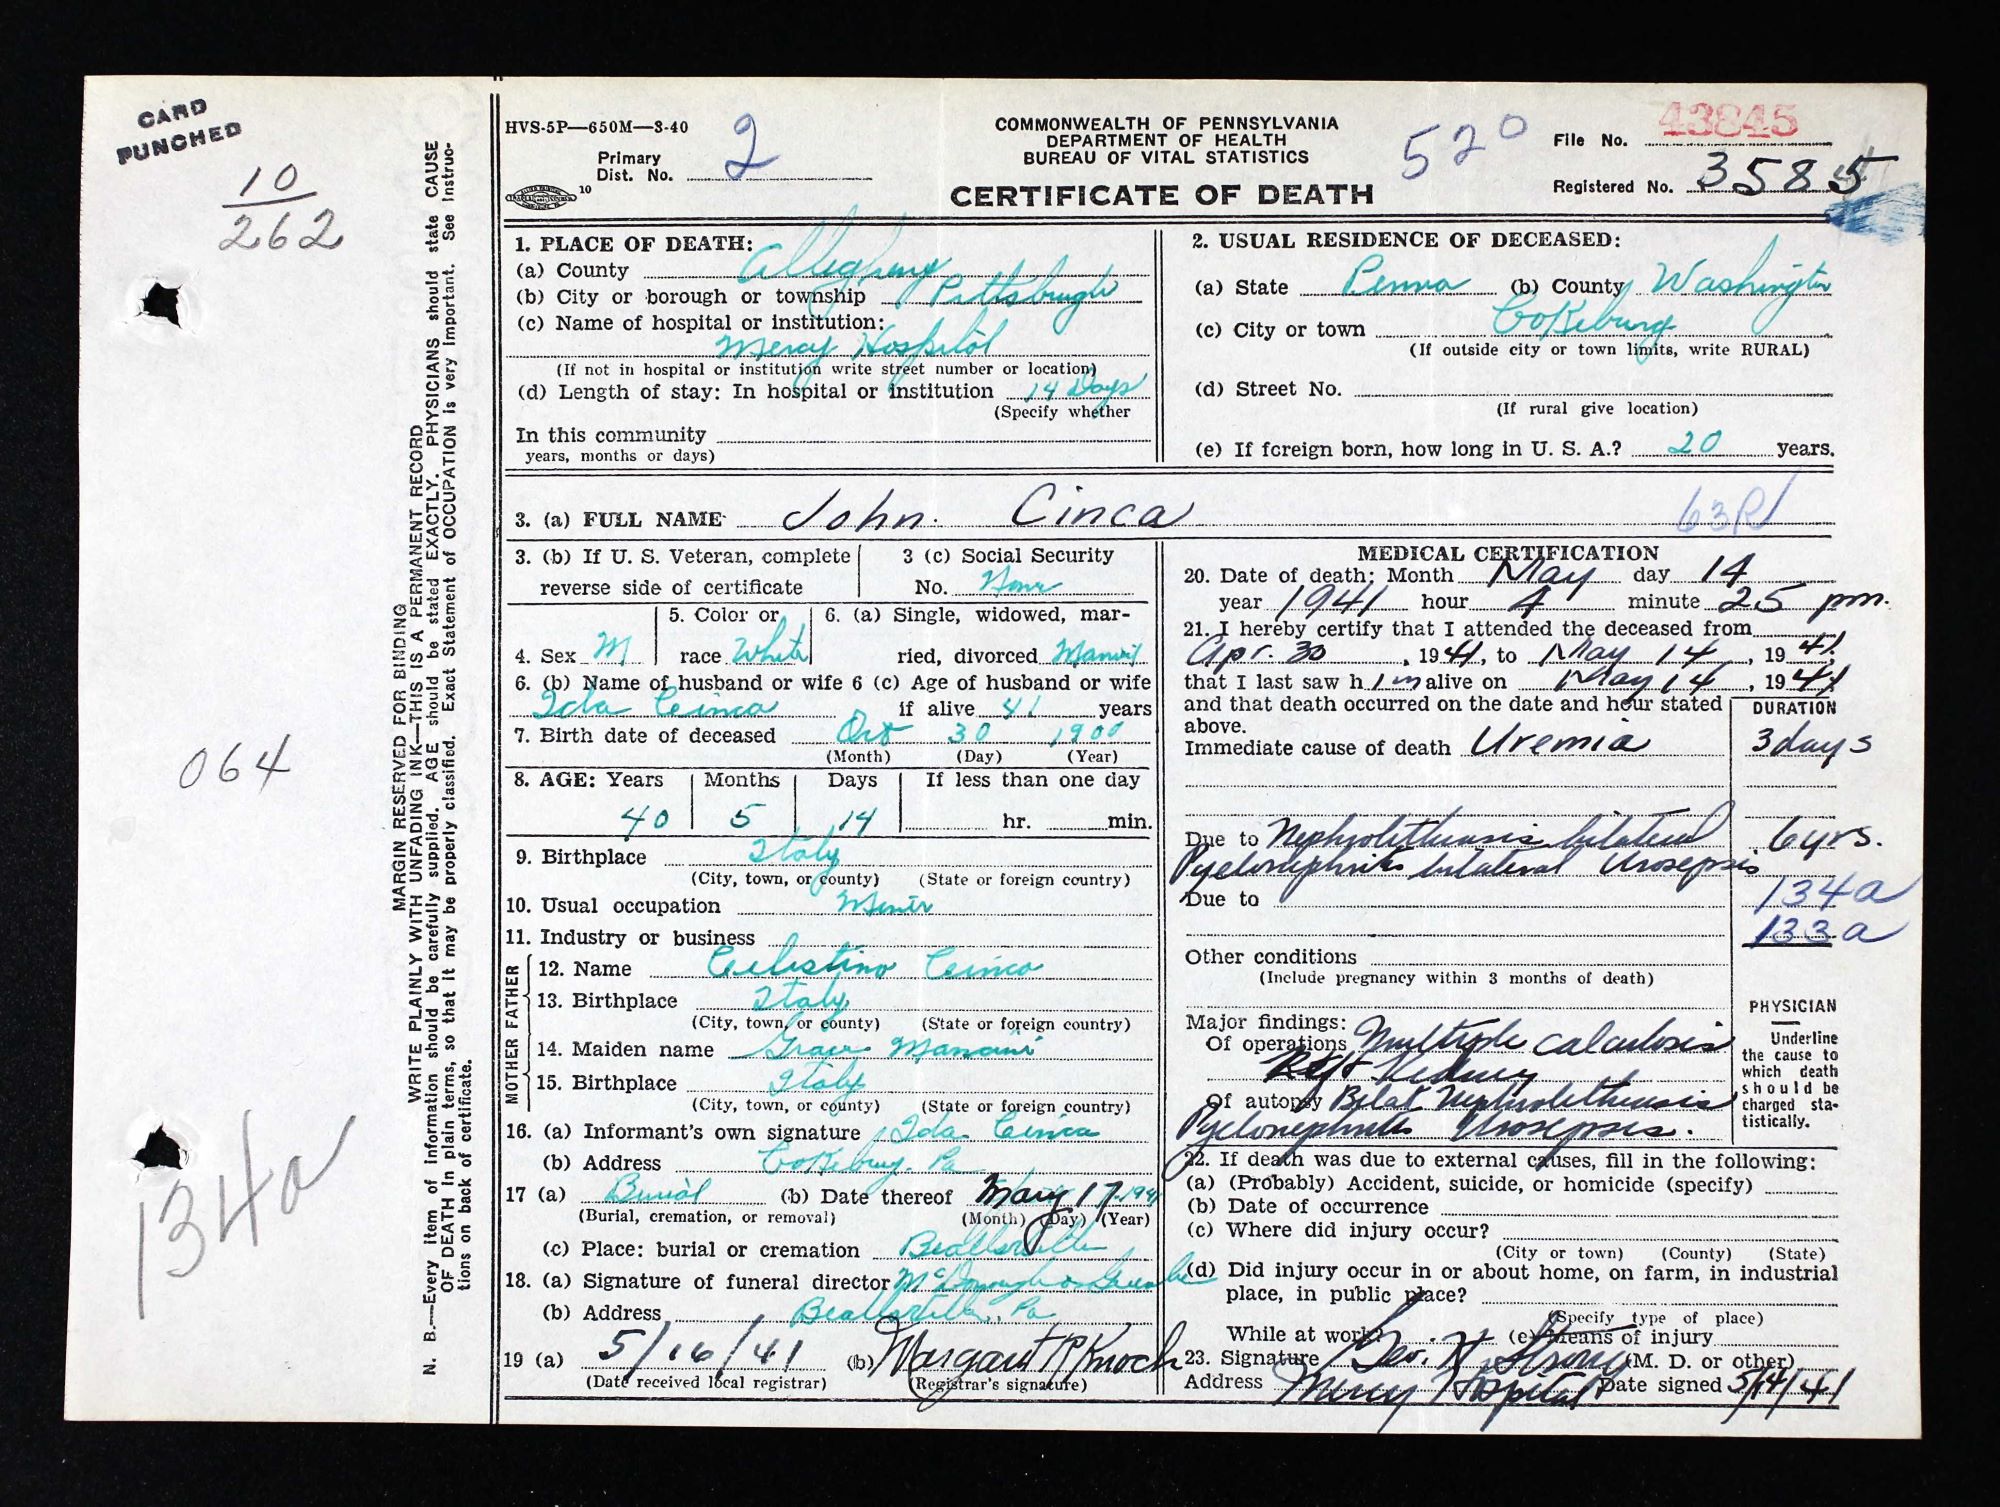 CARD
PUNCHED
10
262
064
134a
MARGIN RESERVED FOR BINDING
WRITE PLAINLY WITH UNFADING INK—THIS IS A PERMANENT RECORD
N. B.—Every item of information should be carefully supplied. AGE should be stated EXACTLY. PHYSICIANS should state CAUSE
OF DEATH in plain terms, so that it may be properly classified. Exact Statement of OCCUPATION is very important. See Instruc-
tions on back of certificate.
HVS-5P—650M—3-40
Primary
Dist. No. 2
10
COMMONWEALTH OF PENNSYLVANIA
DEPARTMENT OF HEALTH
BUREAU OF VITAL STATISTICS
CERTIFICATE OF DEATH
520
File No. 43845
Registered No. 3585
1. PLACE OF DEATH:
(a) County Allegheny
(b) City or borough or township Pittsburgh
(c) Name of hospital or institution:
Mercy Hospital
(If not in hospital or institution write street number or location)
(d) Length of stay: In hospital or institution 14 Days
(Specify whether
In this community
years, months or days)
2. USUAL RESIDENCE OF DECEASED:
(a) State Penna (b) County Washington
(c) City or town Cokeburg
(If outside city or town limits, write RURAL)
(d) Street No.
(If rural give location)
(e) If foreign born, how long in U. S. A.? 20 years.
3. (a) FULL NAME John Cinca
63R
3. (b) If U. S. Veteran, complete
reverse side of certificate
3 (c) Social Security
No. None
4. Sex M
5. Color or
race White
6. (a) Single, widowed, mar-
ried, divorced Married
6. (b) Name of husband or wife
Ida Cinca
6 (c) Age of husband or wife
if alive 41 years
7. Birth date of deceased Oct 30 1900
(Month) (Day) (Year)
8. AGE: Years Months Days If less than one day
40 5 14 hr. min.
9. Birthplace Italy
(City, town, or county) (State or foreign country)
10. Usual occupation Miner
11. Industry or business
FATHER
12. Name Celestino Cinca
13. Birthplace Italy
(City, town, or county) (State or foreign country)
MOTHER
14. Maiden name Grace Mancini
15. Birthplace Italy
(City, town, or county) (State or foreign country)
16. (a) Informant's own signature Ida Cinca
(b) Address Cokeburg, Pa
17 (a) Burial (b) Date thereof May 17 1941
(Burial, cremation, or removal) (Month) (Day) (Year)
(c) Place: burial or cremation Beallsville
18. (a) Signature of funeral director
(b) Address Beallsville, Pa
19 (a) 5/16/41 (b) Margaret R Knoch
(Date received local registrar) (Registrar's signature)
MEDICAL CERTIFICATION
20. Date of death: Month May day 14
year 1941 hour 4 minute 25 pm.
21. I hereby certify that I attended the deceased from
Apr. 30, 1941, to May 14, 1941,
that I last saw h im alive on May 14, 1941
and that death occurred on the date and hour stated
above.
DURATION
Immediate cause of death Uremia 3 days
Due to Nephrolithiasis bilateral 6 yrs.
Pyelonephritis bilateral Urosepsis
Due to
134a
133a
Other conditions
(Include pregnancy within 3 months of death)
Major findings:
Of operations Multiple calculosis
Right Kidney
Of autopsy Bilat Nephrolithiasis
Pyelonephritis Urosepsis.
PHYSICIAN
Underline
the cause to
which death
should be
charged sta-
tistically.
22. If death was due to external causes, fill in the following:
(a) (Probably) Accident, suicide, or homicide (specify)
(b) Date of occurrence
(c) Where did injury occur?
(City or town) (County) (State)
(d) Did injury occur in or about home, on farm, in industrial
place, in public place?
(Specify type of place)
While at work? (e) Means of injury
23. Signature Geo. H Strong (M. D. or other)
Address Mercy Hospital Date signed 5/14/41